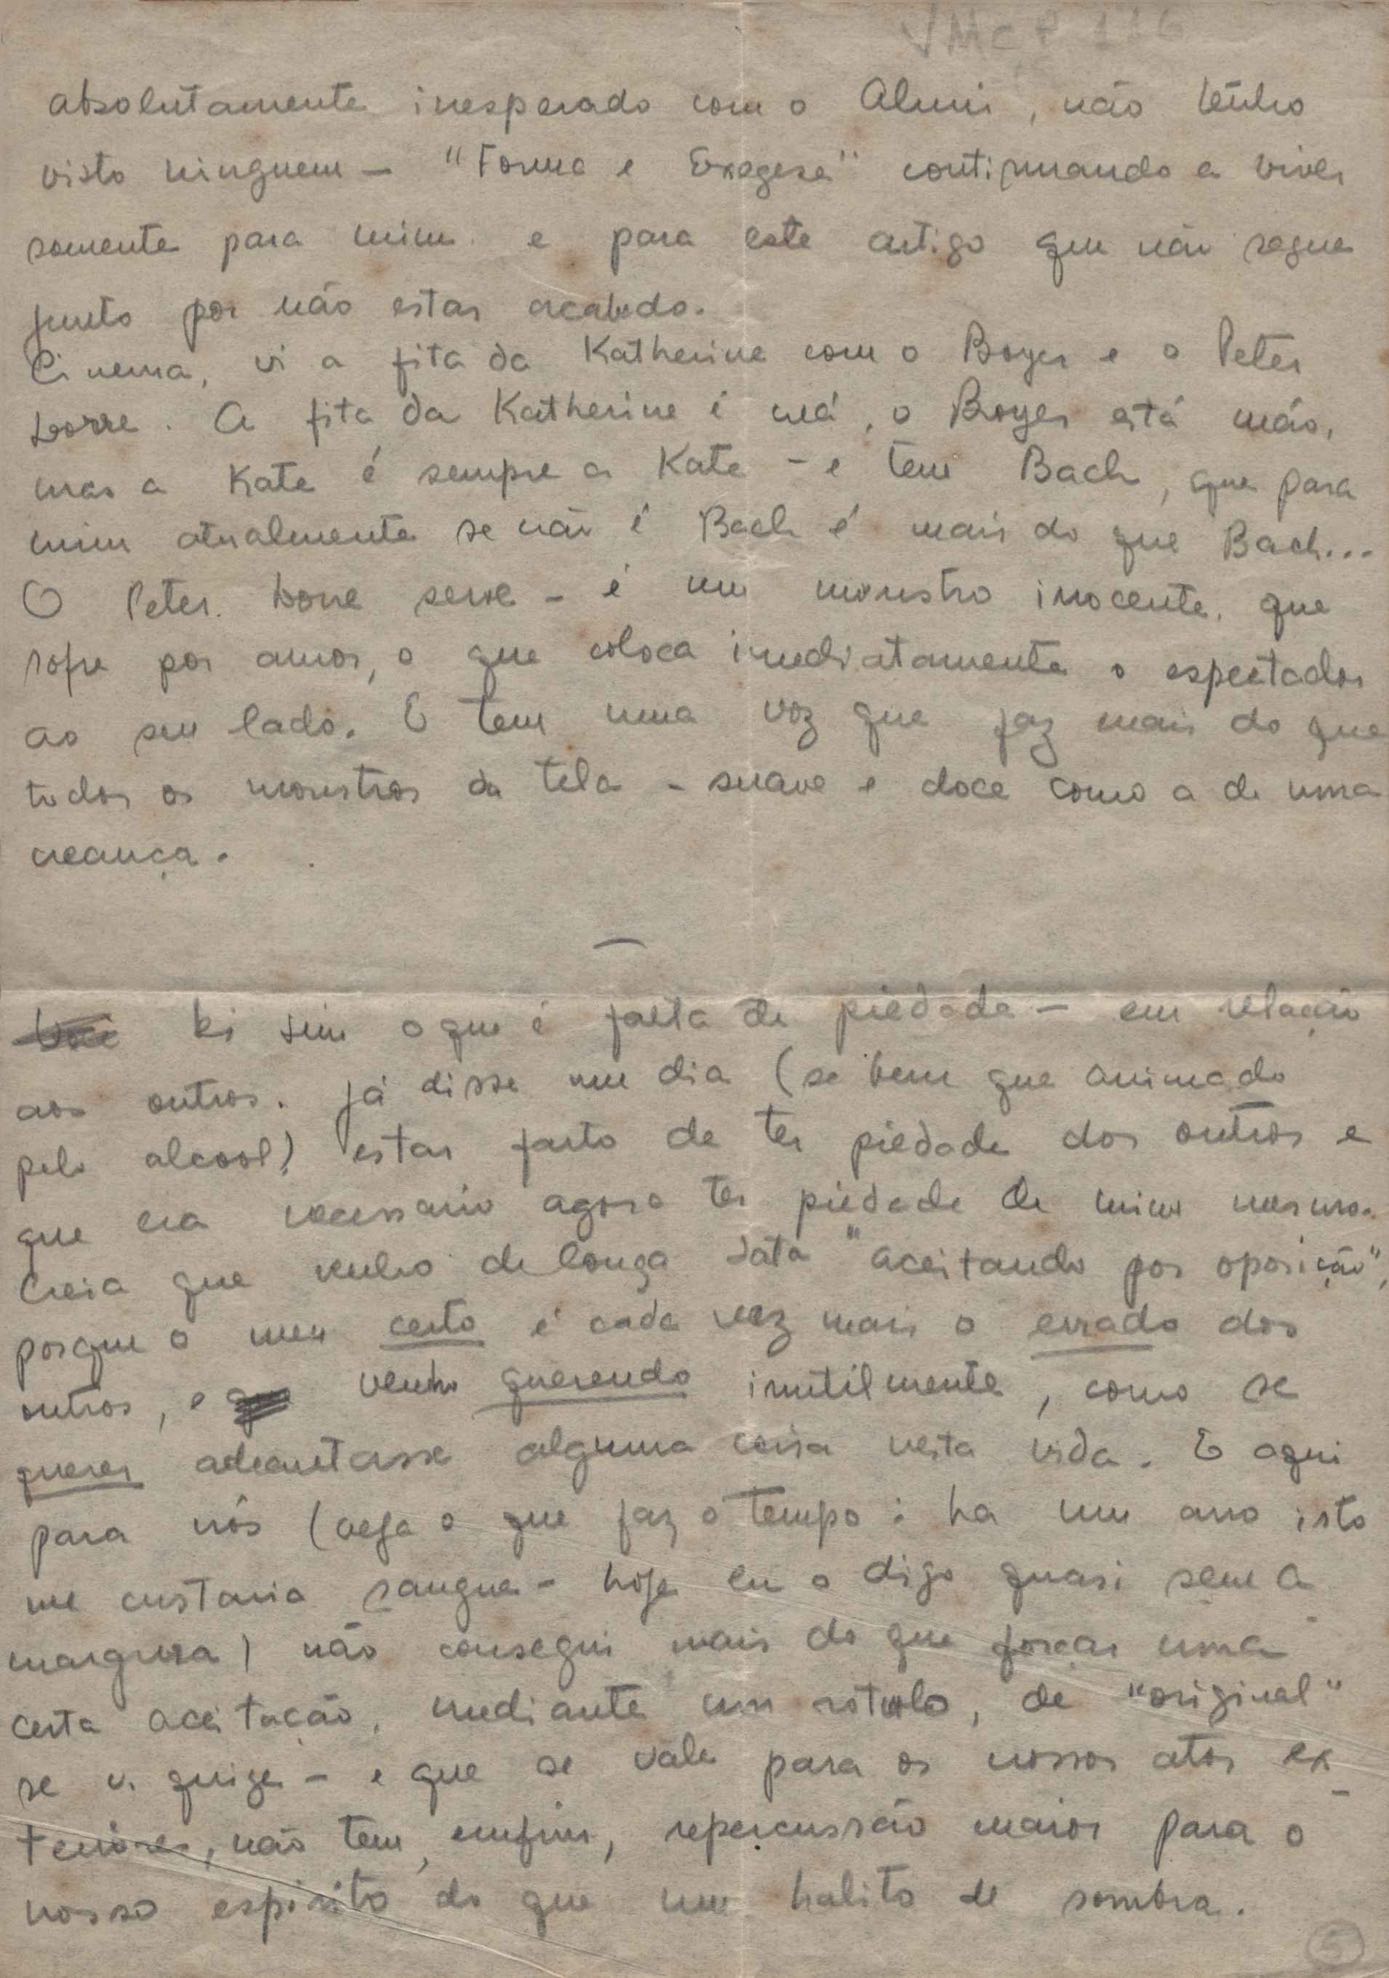 VMcP 116
absolutamente inesperado com o Almir, não tenho
visto ninguem — "Forma e Exegese" continuando a viver
somente para mim e para este artigo que não segue
junto por não estar acabado.
Cinema, vi a fita da Katherine com o Boyer e o Peter
Lorre. A fita da Katherine é má, o Boyer está máo,
mas a Kate é sempre a Kate — e tem Bach, que para
mim atualmente se não é Bach é mais do que Bach...
O Peter Lorre serve — é um monstro inocente, que
sofre por amor, o que coloca imediatamente o espectador
ao seu lado. E tem uma voz que faz mais do que
todos os monstros da tela — suave e doce como a de uma
creança.
—
sim o que é falta de piedade — em relação
aos outros. Já disse um dia (se bem que animado
pelo alcool) estar farto de ter piedade dos outros e
que era necessario agora ter piedade de mim mesmo.
Creia que venho de longa data "aceitando por oposição",
porque o meu certo é cada vez mais o errado dos
outros, e venho querendo inutilmente, como se
querer adeantasse alguma coisa nesta vida. E aqui
para nós (veja o que faz o tempo: ha um ano isto
me custaria sangue — hoje eu o digo quasi sem a
margura) não consegui mais do que forçar uma
certa aceitação, mediante um rotulo, de "original"
se v. quizer — e que se vale para os nossos atos ex-
teriores, não tem, emfim, repercussão maior para o
nosso espirito do que um halito de sombra.
5